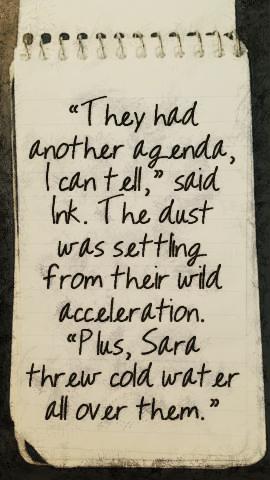 “They had
another agenda,
I can tell,” said
Ink. The dust
was settling
from their wild
acceleration.
“Plus, Sara
threw cold water
all over them.”